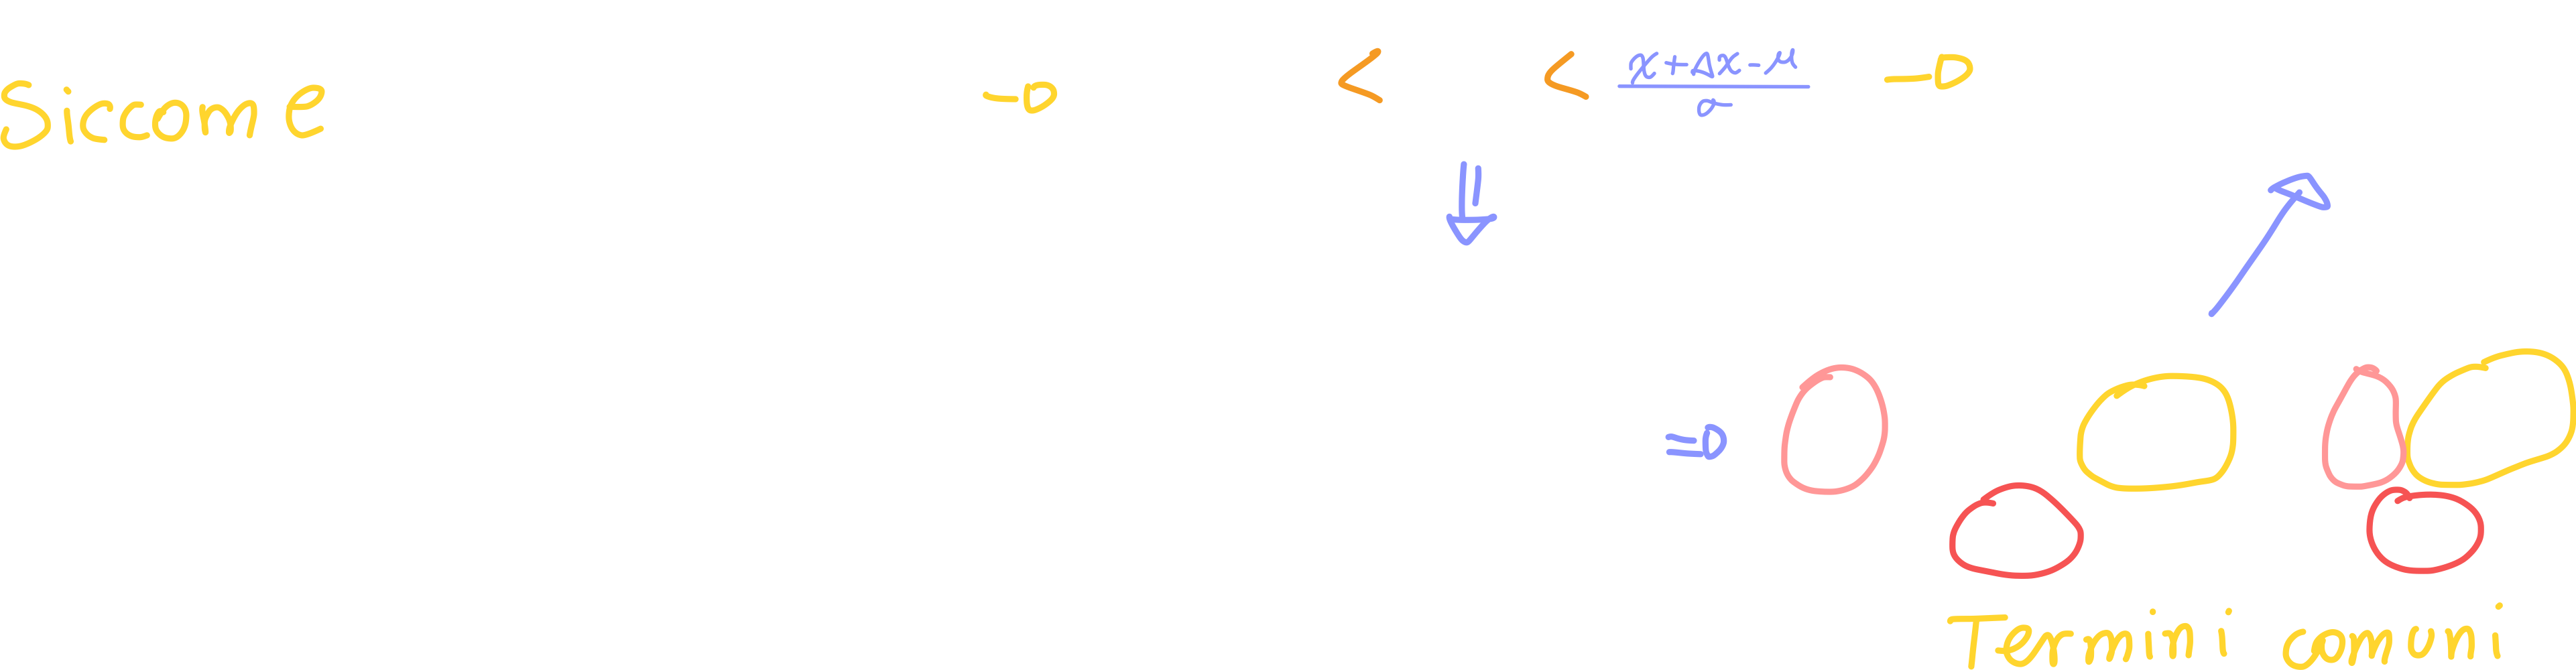 Siccome → < < (x+Δx-μ)/σ →
⇓
⇒
Termini comuni